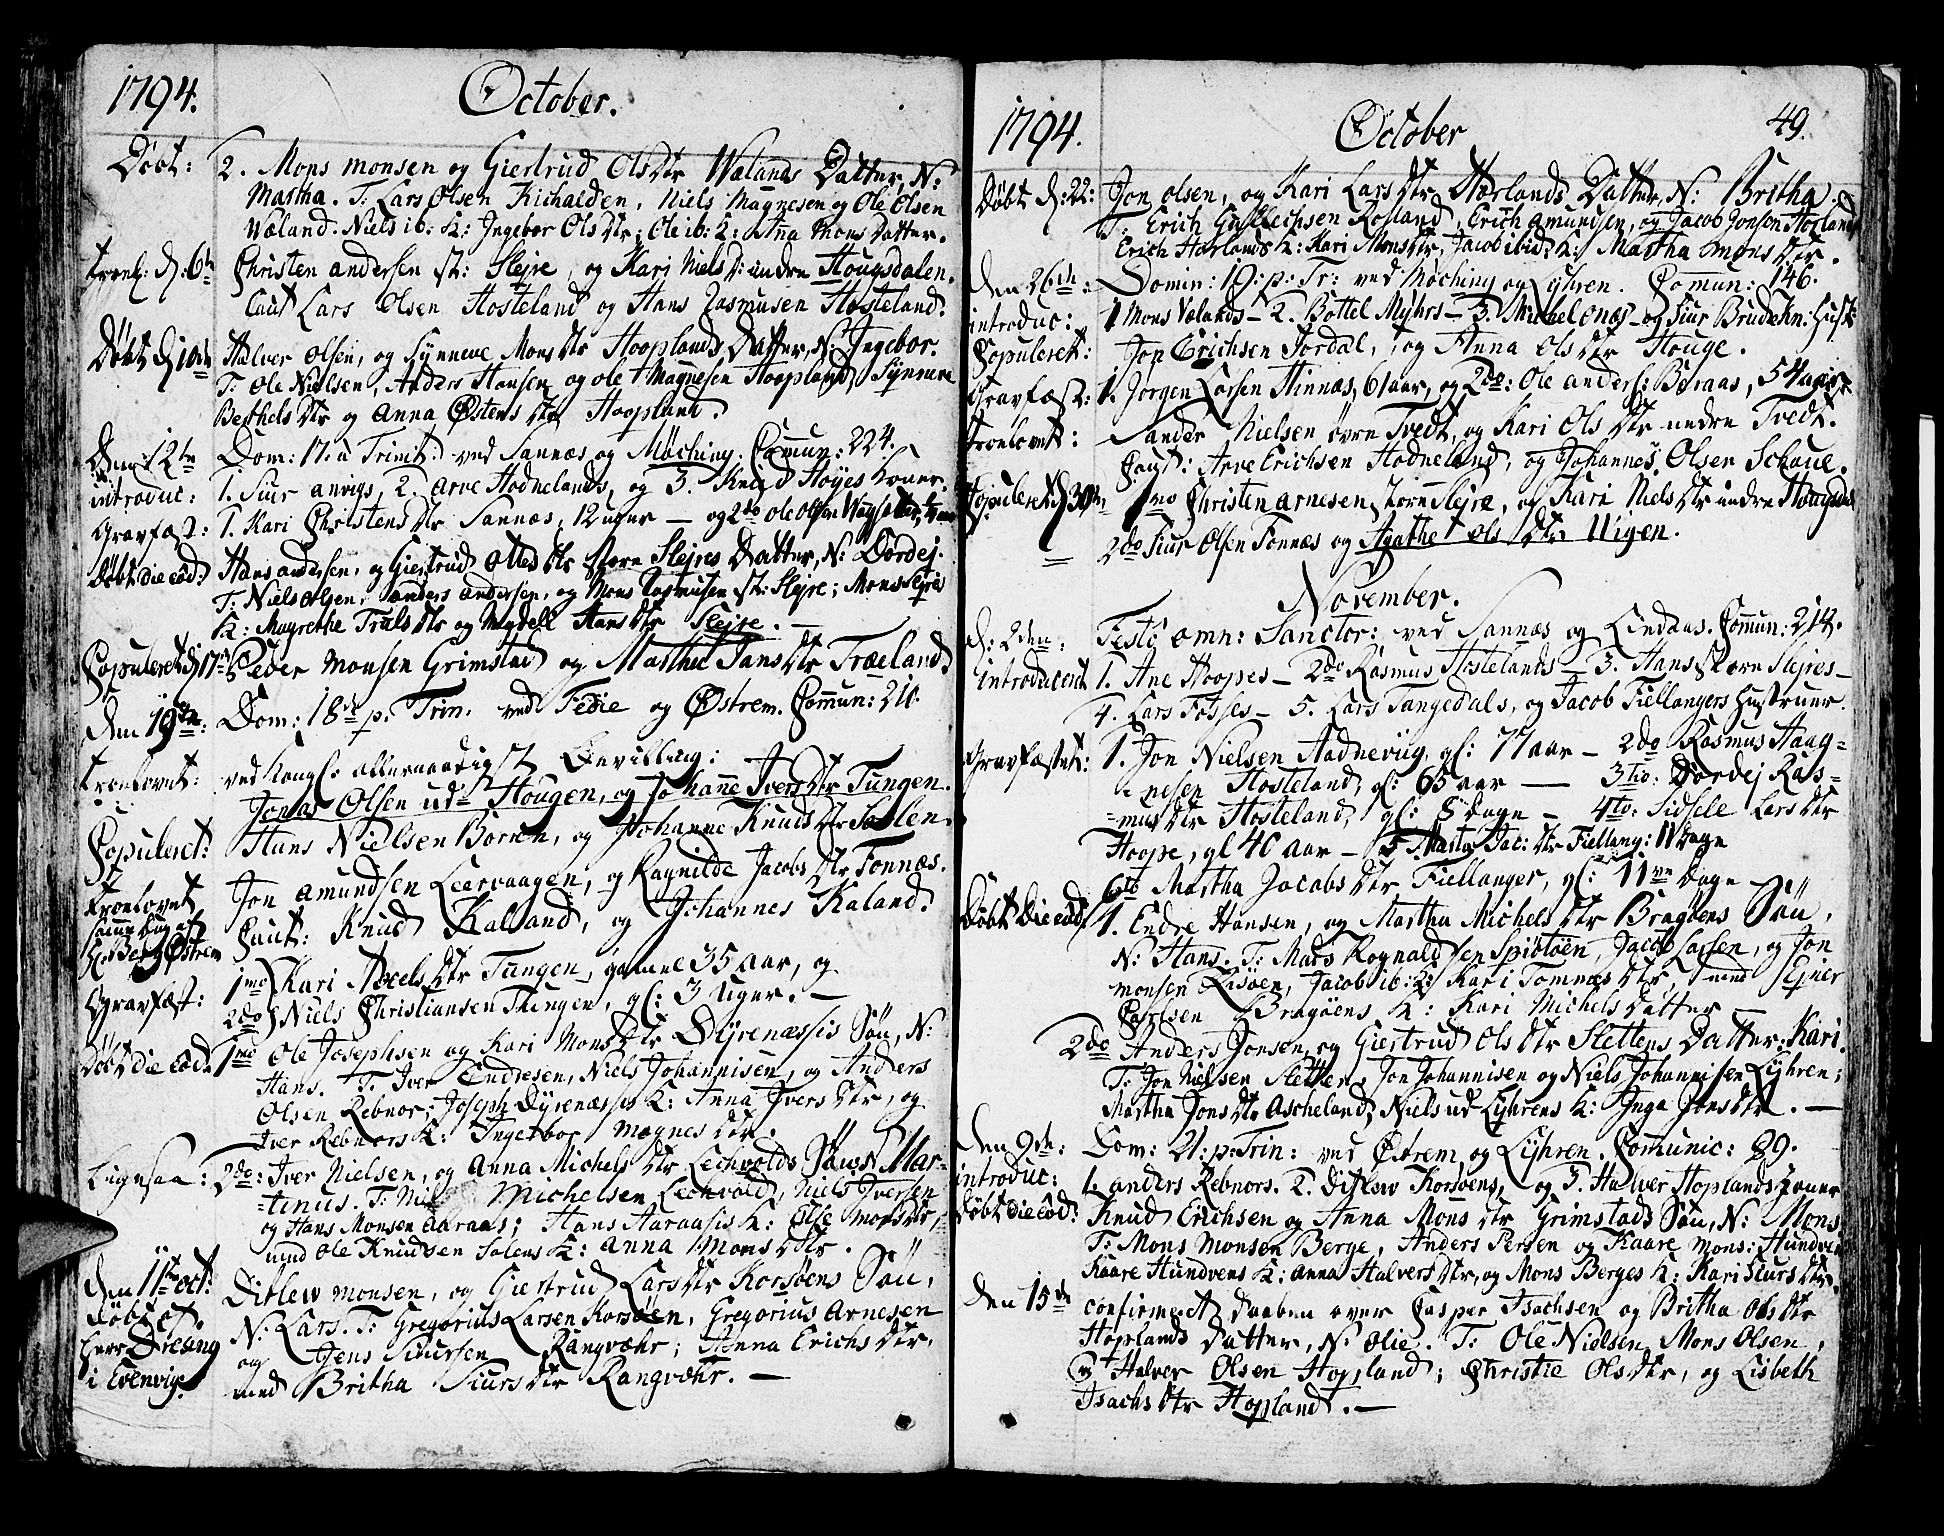 1794. October.
Döbt: 2. Mons monsen og Giertrud Olsdtr Wælands Datter, N:
Martha. T: Lars Olsen Kichalden, Niels Magnesen og Ole Olsen
Wæland. Niels ib: K: Ingebor Olsdtr; Ole ib: K: Anna Mons Datter.
Troel: d: 6te Christen andersen st: Slejre, og Kari Niels d: undre Hougsdalen.
Caut Lars Olsen Hosteland og Hans Rasmusen Hosteland.
Döbt d 10de Halver Olsen, og Synneve Monsdtr Hooplands Datter, N: Ingebor.
T: Ole Nielsen, Anders Hansen og ole Magnesen Hoopland, Synneve
Berthelsdtr og Anna Østensdtr Hoopland.
Den 12te Dom: 17. a Trinit. ved Sannæs og Möching. Comun: 224.
introduc: 1. Siur anvigs, 2. Arve Hodnelands, og 3. Knud Höyes Koner.
Gravfæst: 1. Kari Christensdtr Sannæs, 12 uger — og 2do ole olsen
Döbt die eod: Hans andersen, og Giertrud Ottesdtr store Slejres Datter, N: Dordej.
T: Niels Olsen, anders andersen, og Mons Rasmusen st: Slejre; Mons Slejres
K: Magrethe Trulsdtr og Magdell Hansdtr Slejre. —
Copuleret d 17de Peder Monsen Grimstad og Martha Jansdtr Træeland.
Den 19de: Dom: 18de p. Trin. ved Fedie og Østrem. Comun: 210.
Troelovet: ved Kongl: allernaadigst Bevilling:
Jonas Olsen ud= Hougen, og Johanne Iversdtr Tungen.
Copuleret: Hans Nielsen Borren, og Johanne Knudsdtr Solen.
Troelovet Jon amundsen Leervaagen, og Ragnilde Jacobsdtr Tonnæs.
samme Dag af Caut: Knud Kaland, og Johannes Kaland.
H: Berg Østrem
Gravfæst: 1mo Kari Axelsdtr Tungen, gamel 35 aar, og
2do Niels Christiansen Thingen, gl: 3 Uger. —
Döbt die eod: 1mo Ole Josephsen og Kari Monsdtr Dyrenæssis Sön, N:
Hans. T: Iver Endresen, Niels Johannisen, og Anders
Olsen Rebnor; Joseph Dyrenæssis K: Anna Iversdtr, og
Iver Rebnors K: Ingebor Magnesdtr.
Ligesaa: 2do: Iver Nielsen, og Anna Michelsdtr Lechvolds Sön N: Mar-
=tinus. T: Michelsen Lechvold, Niels Iversen
og Hans Monsen Aaraas; Hans Aaraasis K: Else Monsdtr,
med Ole Knudsen Solens K: Anna Monsdtr.
Den 11te oct: Ditlew Monsen, og Giertrud Larsdtr Korsöens Sön,
Döbt af N: Lars. T: Gregorius Larsen Korsöen, Gregorius Arnesen
Herr Dresing og Jens Siursen Rangvöhr; Anna Erichsdtr,
i Evenvig. med Britha Siursdtr Rangvöhr. —
1794. October 49.
Döbt d: 22: Jon Olsen, og Kari Larsdtr Hærlands Datter, N: Britha.
T: Erich Gullechsen Rosland, Erich amundsen, og Jacob Jonsen Horland
Erich Harlands K: Kari Monsdtr, Jacob ibid: K: Martha Monsdtr.
Den 26de: Domin: 19: p: Tr: ved Möching og Lyhren. Comun: 146.
introduc: 1 Mons Vælands — 2. Bottel Myhrs — 3. Michel Onæs — og Siur Brudekn: Hust:
Copuleret: Jon Erichsen Jordal, og Anna Olsdtr Houge.
Gravfæst: 1. Jorgen Larsen Hinnæs, 61 aar, og 2do: Ole anders: Beraas, 54 aar.
Troelovet: Sander Nielsen övre Tvedt, og Kari Olsdtr nedre Tvedt.
Caut: Arve Erichsen Hodneland, og Johannes Olsen Schoue.
Copuleret d 30te 1mo Christen Arnesen, store Slejre, og Kari Nielsdtr undre Hougsdal
2do Siur Olsen Tonnæs og Agathe Olsdtr Wigen.
November.
d: 2den: Festo omn: Sanctor: ved Sannæs og Lindaas. Comun: 218.
introduceret 1. Ane Hoopes — 2do Rasmus Hostelands — 3. Hans store Slejres —
4. Lars Fosses — 5. Lars Tangedals, og Jacob Fiellangers Hustruer.
Gravfæstet: 1. Jon Nielsen Aadnevig, gl: 77 aar — 2do Rasmus Haag-
nesen Hosteland, gl: 65 aar — 3tio: Dordej Ras=
=musdtr Hosteland, gl: 8 dage — 4to: Sidsele Larsdtr
Hoope, gl 40 aar — 5. Marta Jac: dtr Fiellang: 11 dage
6to Martha Jacobsdtr Fiellanger, gl: 11 Dage
Döbt die eod: 1. Endre Hansen, og Martha Michelsdtr Bragöens Sön,
N: Hans. T: Mats Rognaldsen Spiötöen, Jacob Larsen, og Jon
Monsen Risöen, Jacob ib: K: Kari Tommesdtr, med Sejuer
Carlsen Bragöens K: Kari Michels Datter
2do Anders Jonsen, og Giertrud Olsdtr Slettens Datter: Kari.
T: Jon Nielsen Sletten, Jon Johannisen og Niels Johannisen Lyhren;
Martha Jonsdtr Ascheland, Niels ud Lyhrens K: Inga Jonsdtr. —
Den 9de: Dom: 21: p: Trin: ved Østrem og Lyhren. Comunic: 89.
introduc: 1. Anders Rebnors. 2. Ditlew Korsöens, og 3. Halver Hoplands koner
Döbt die eod: Knud Erichsen og Anna Monsdtr Grimstads Sön, N: Mons
T: Mons Monsen Berge, Anders Persen og Kaare Mons: Hundven
Kaare Hundvens K: Anna Halversdtr, og Mons Berges K: Kari Siursdtr.
Den 15de confirmeret Daaben over Casper Isachsen og Britha Olsdtr
Hoplands Datter, N: Olie. T: Ole Nielsen, Mons Olsen,
og Halver Olsen Hopland; Christie Olsdtr, og Lisbeth
Isachsdtr Hopland. —